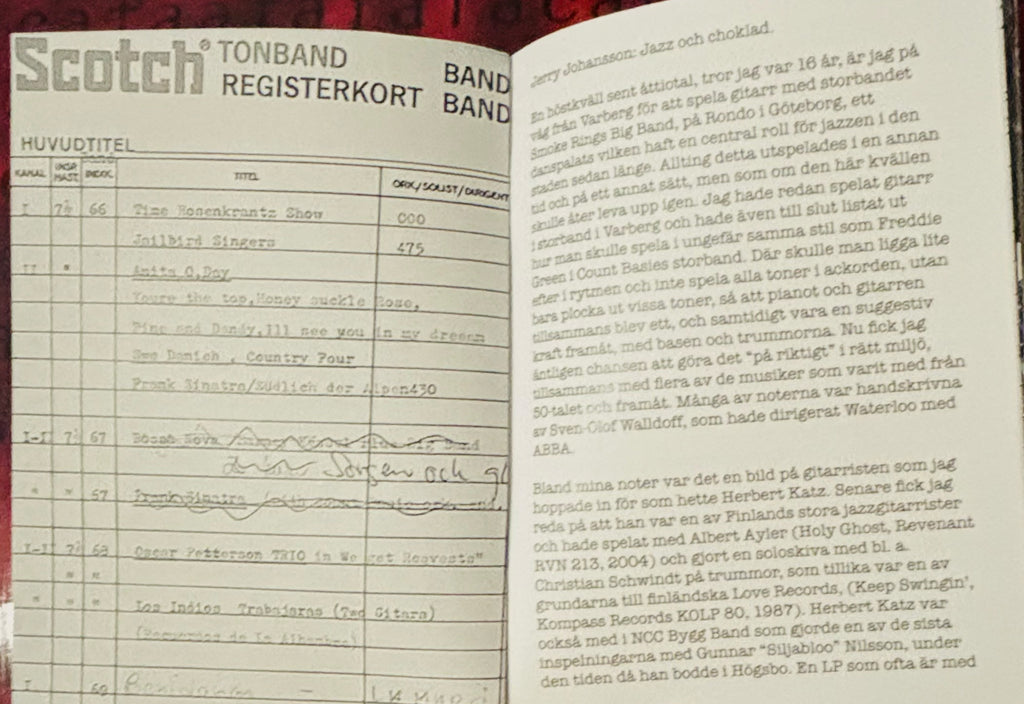 Scotch® TONBAND
REGISTERKORT
BAND
BAND
HUVUDTITEL
KANAL
INDEX
TITEL
ORK/SOLIST/DIRIGENT
I 7½ 66 Time Rosenkrantz Show 000
Jailbird Singers 475
II " Anita O,Day
Youre the top,Honey suckle Rose,
Fine and Dandy,Ill see you in my dream
Swe Danich , Country Four
Frank Sinatra/Südlich der Alpen430
I-I 7½ 67 Bossa Nova Big Band
Sorgen och
" " 67 Frank Sinatra
I-I 7½ 68 Oscar Petterson TRIO in We get Reqvests"
" "
" " " Los Indios Trabajaras (Two Gitars)
I 69
Jerry Johansson: Jazz och choklad.
En höstkväll sent åttiotal, tror jag var 16 år, är jag på
väg från Varberg för att spela gitarr med storbandet
Smoke Rings Big Band, på Rondo i Göteborg, ett
danspalats vilken haft en central roll för jazzen i den
staden sedan länge. Allting detta utspelades i en annan
tid och på ett annat sätt, men som om den här kvällen
skulle åter leva upp igen. Jag hade redan spelat gitarr
i storband i Varberg och hade även till slut listat ut
hur man skulle spela i ungefär samma stil som Freddie
Green i Count Basies storband. Där skulle man ligga lite
efter i rytmen och inte spela alla toner i ackorden, utan
bara plocka ut vissa toner, så att pianot och gitarren
tillsammans blev ett, och samtidigt vara en suggestiv
kraft framåt, med basen och trummorna. Nu fick jag
äntligen chansen att göra det "på riktigt" i rätt miljö,
tillsammans med flera av de musiker som varit med från
50-talet och framåt. Många av noterna var handskrivna
av Sven-Olof Walldoff, som hade dirigerat Waterloo med
ABBA.
Bland mina noter var det en bild på gitarristen som jag
hoppade in för som hette Herbert Katz. Senare fick jag
reda på att han var en av Finlands stora jazzgitarrister
och hade spelat med Albert Ayler (Holy Ghost, Revenant
RVN 213, 2004) och gjort en soloskiva med bl. a.
Christian Schwindt på trummor, som tillika var en av
grundarna till finländska Love Records, (Keep Swingin',
Kompass Records KOLP 80, 1987). Herbert Katz var
också med i NCC Bygg Band som gjorde en av de sista
inspelningarna med Gunnar "Siljabloo" Nilsson, under
den tiden då han bodde i Högsbo. En LP som ofta är med